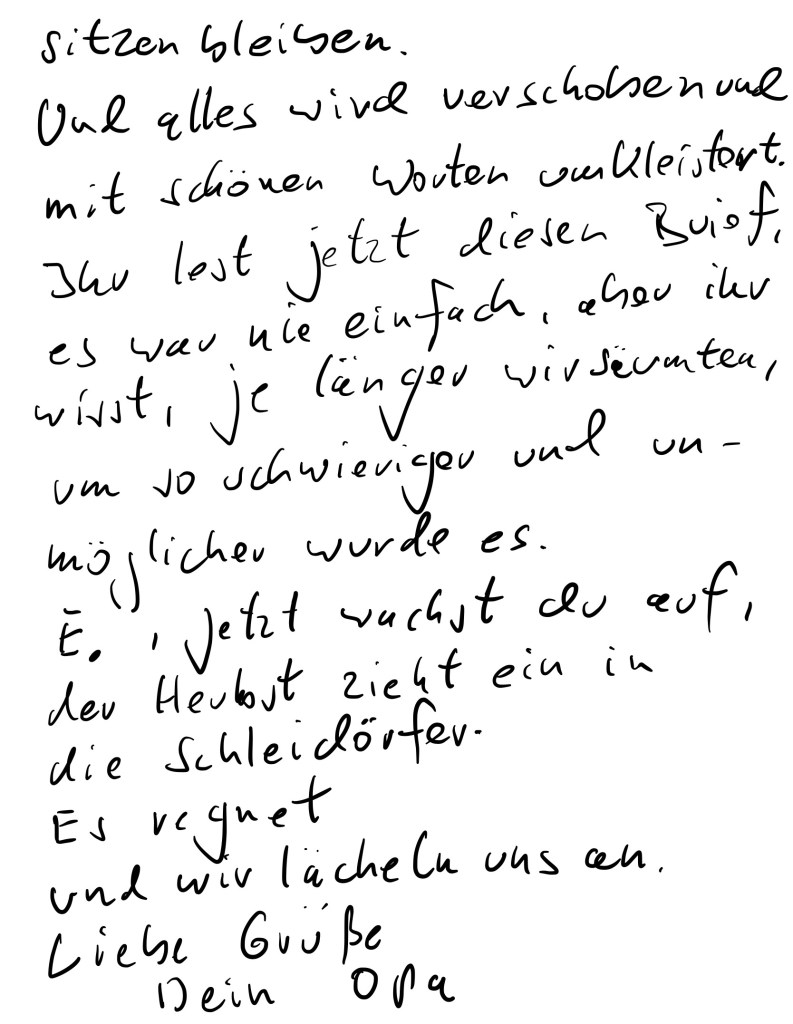 sitzen bleiben.
Und alles wird verschoben und
mit schönen Worten umkleistert.
Ihr lest jetzt diesen Brief,
es war nie einfach, aber ihr
wisst, je länger wir säumten,
um so schwieriger und un-
möglicher wurde es.
E., jetzt wachst du auf,
der Herbst zieht ein in
die Schleidörfer.
Es regnet
und wir lächeln uns an.
Liebe Grüße
Dein Opa